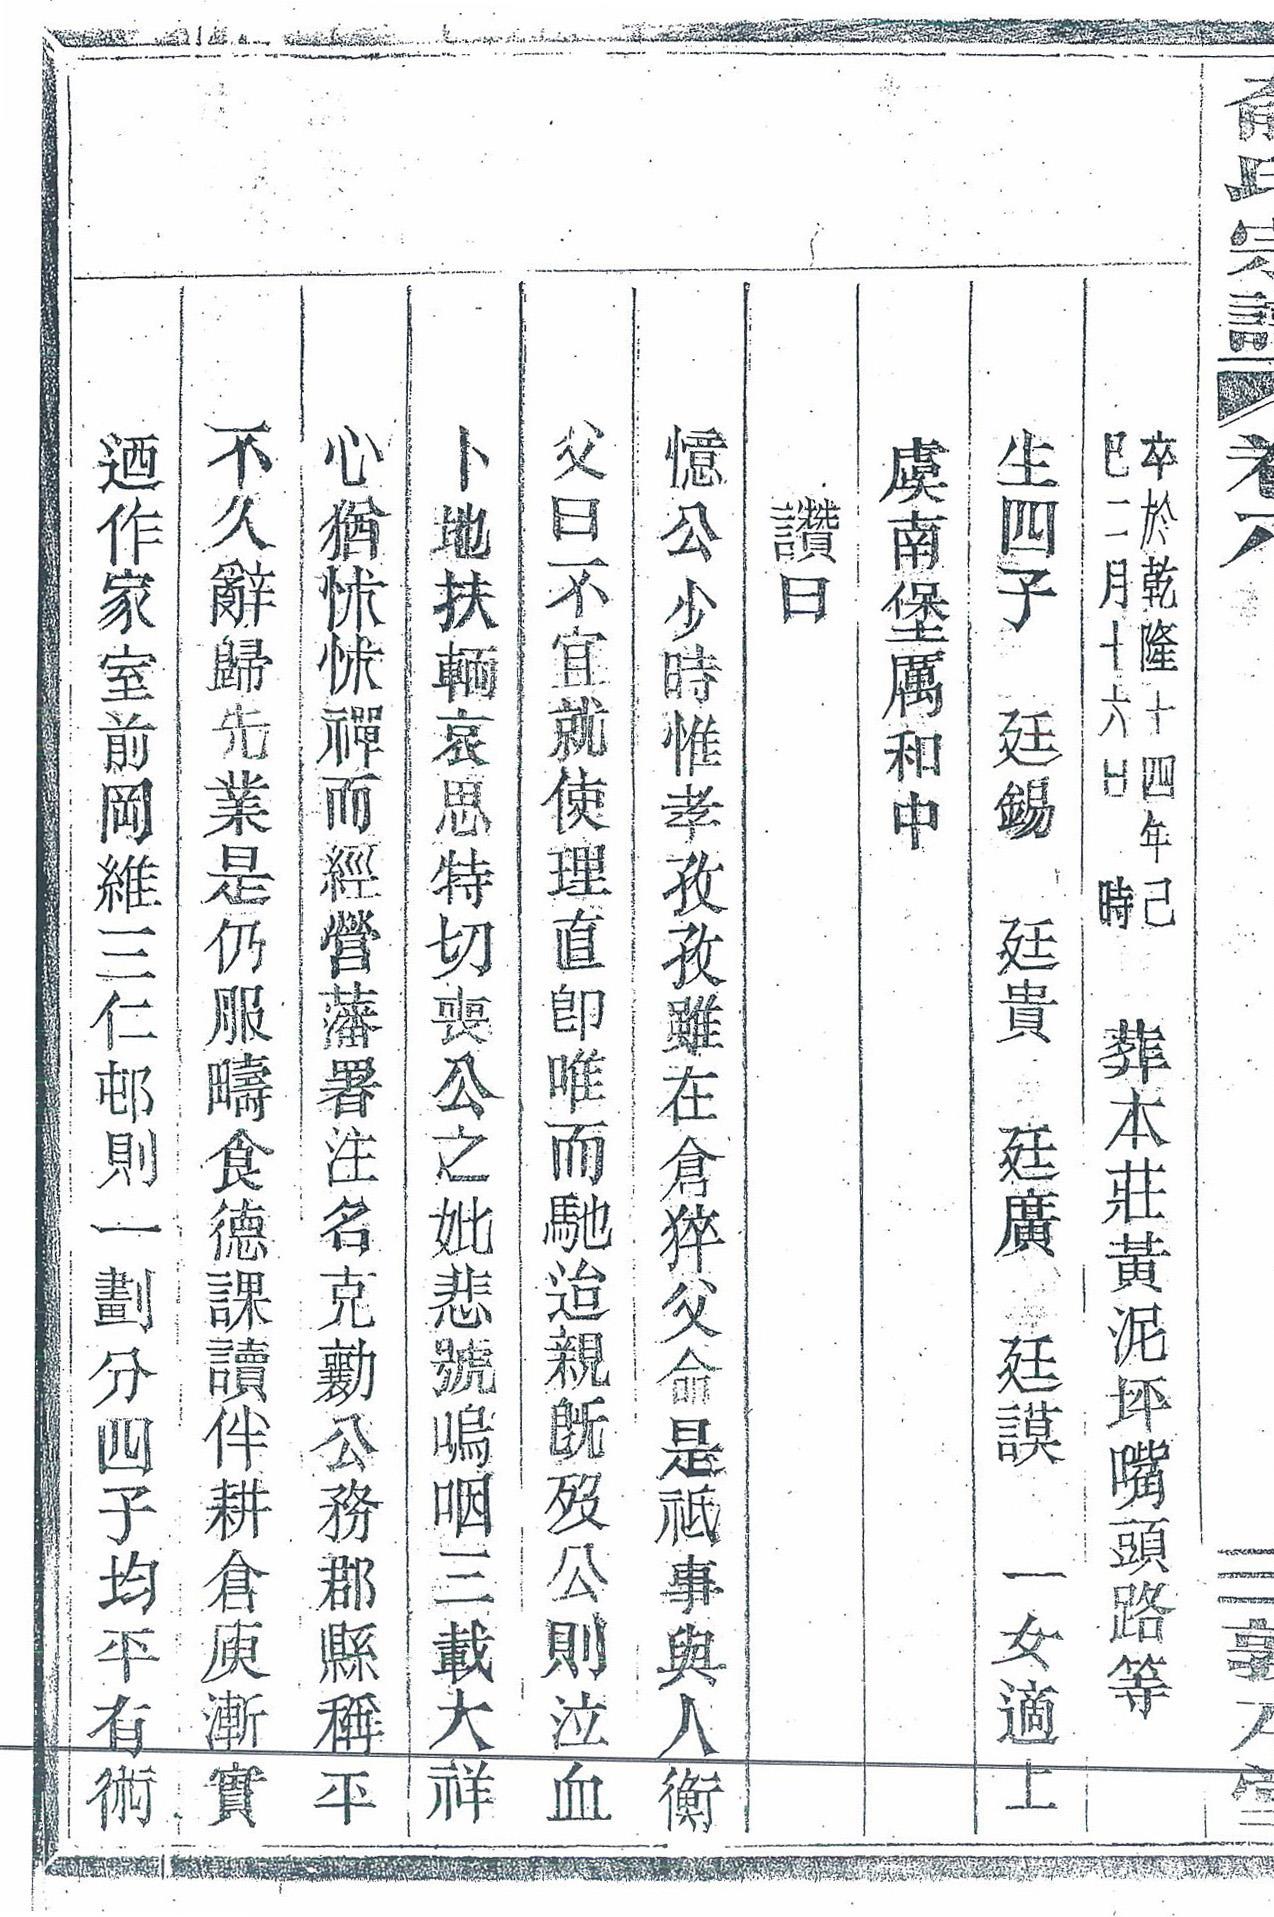 俞氏宗譜 卷八 三 敦 堂
卒於乾隆十四年己
巳二月十六日 時 葬本莊黃泥坪嘴頭路等
生四子 廷錫 廷貴 廷廣 廷謨 一女適上
虞南堡厲和中
讚曰
憶公少時惟孝孜孜雖在倉猝父命是祗事與人衡
父曰不宜就使理直卽唯而馳迨親旣歿公則泣血
卜地扶輀哀思特切喪公之妣悲號嗚咽三載大祥
心猶怵怵禫而經營藩署注名克勷公務郡縣稱平
不久辭歸先業是仍服疇食德課讀伴耕倉庾漸實
迺作家室前岡維三仁邨則一劃分四子均平有術